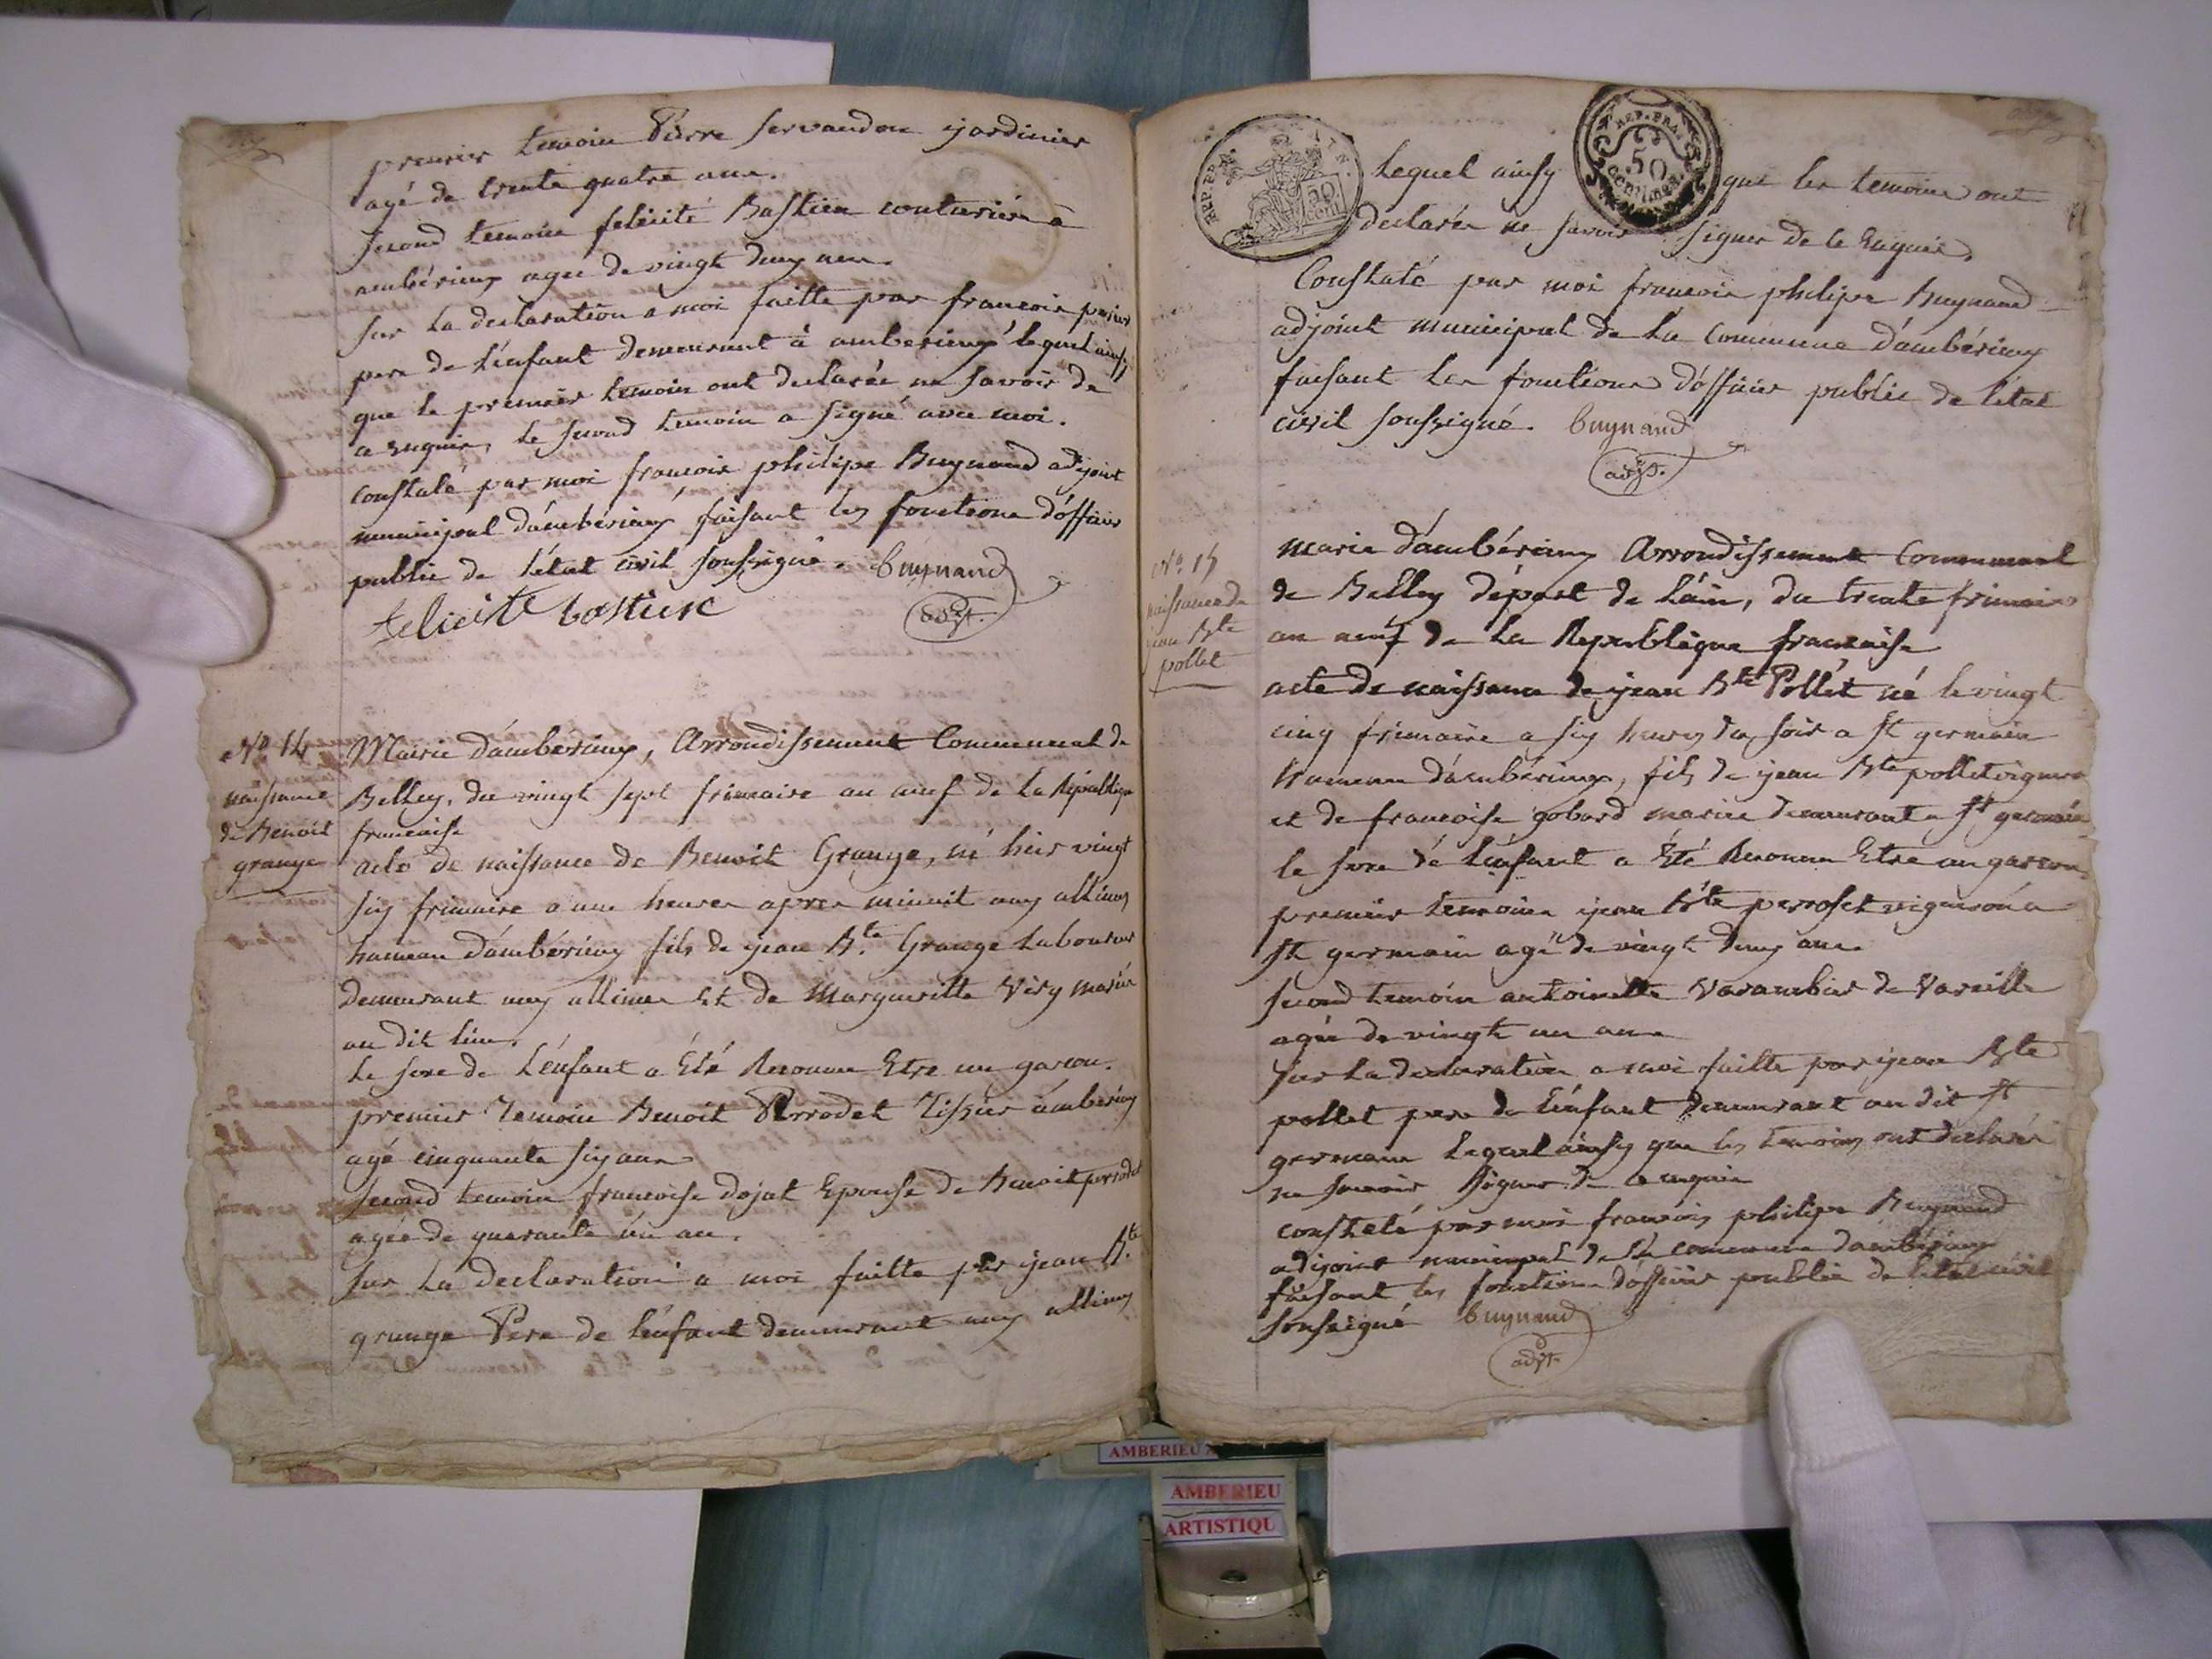 premier temoin Pierre servandon jardinier
agé de trente quatre ans.
second temoin felicité Bastien couturiere a
ambérieux agee de vingt deux ans
sur la declaration a moi faitte par francois
pere de l'enfant demeurant à amberieux lequel ainsy
que le premier temoin ont declarée ne savoir de
ce enquis, le second temoin a signé avec moi.
constaté par moi francois philipe Buynand adjoint
municipal d'ambérieux faisant les fonctions d'officier
public de l'état civil soussigné. buynand
adjt.
felicité bastien
No. 14
naissance
de Benoit
grange
Mairie d'ambérieux, Arrondissement Communal de
Belley, du vingt sept frimaire an neuf de la République
francaise
acte de naissance de Benoit Grange, né hier vingt
six frimaire a une heures apres minuit aux allimes
hameau d'ambérieux fils de jean Bte. Grange laboureur
demeurant aux allimes et de Margueritte Véry mariés
au dit lieu.
le sexe de l'enfant a été Reconnu Etre un garcon.
premier temoin Benoit Perrodet Tissier ambérieux
agé cinquante six ans
second temoin francoise dojat Epouse de Benoit perrodet
agée de quarante un an.
sur la declaration a moi faitte par jean Bte.
grange Pere de l'enfant demeurant aux allimes
REP. FRA.
50
cent
REP. FRA.
50
centimes
lequel ainsy que les temoins ont
declarée ne savoir signer de ce enquis.
Constaté par moi francois philipe Buynand
adjoint municipal de la Commune d'ambérieux
faisant les fonctions d'officier public de l'état
civil soussigné. buynand
adjt.
No. 15
naissance de
jean Bte
pollet
Marie d'ambérieux Arrondissement Communal
de Belley départ de l'ain, du trente frimaire
an neuf de la République francaise
acte de naissance de jean Bte Pollet né le vingt
cinq frimaire a six heures du soir a st germain
hameau d'ambérieux, fils de jean Bte pollet vigneron
et de francoise gobard mariés demeurant a st germain
le sexe de l'enfant a été Reconnu Etre un garcon
premier temoin jean Bte perroset vigneron a
st germain agé de vingt deux ans
second temoin antoinette Varambier de Vareille
agée de vingt un ans
sur la declaration a moi faitte par jean Bte
pollet pere de l'enfant demeurant au dit st
germain lequel ainsy que les temoins ont declarée
ne savoir signer de ce enquis
constaté par moi francois philipe Buynand
adjoint municipal de la commune d'ambérieux
faisant les fonctions d'officier public de l'état civil
soussigné buynand
adjt.
AMBERIEU
AMBERIEU
ARTISTIQU